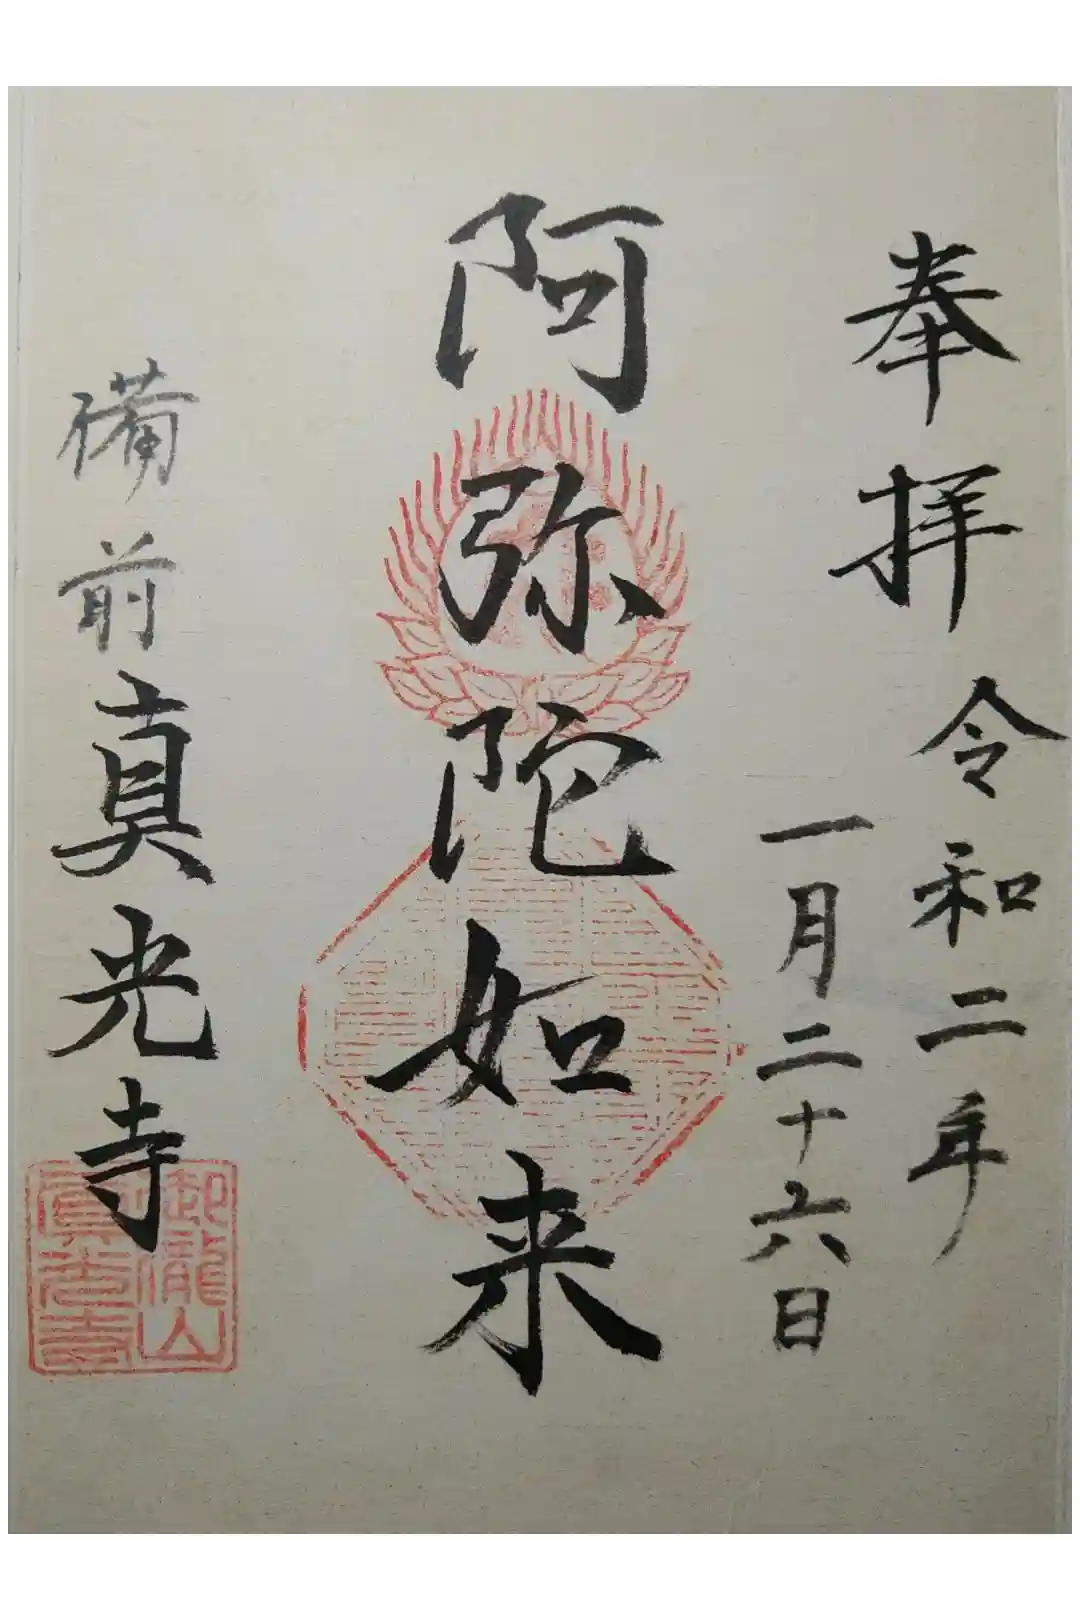 奉拝
令和二年
一月二十六日
阿弥陀如来
備前真光寺
御瀧山
真光寺